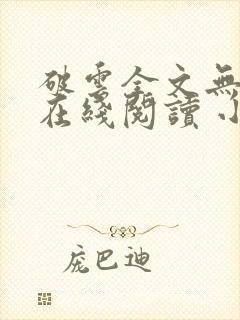 破雲全文無
在綫閱讀
庞巴迪